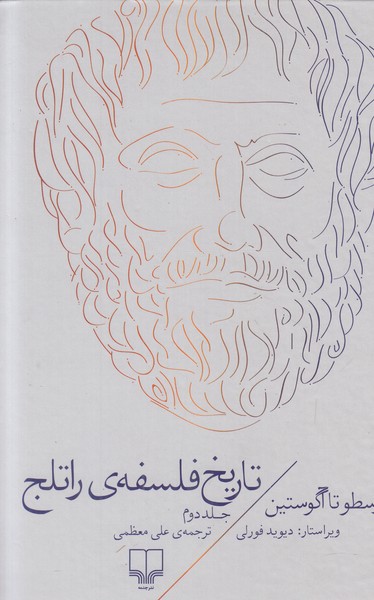 تاریخ فلسفه‌ی راتلج
جلد دوم
ترجمه‌ی علی معظمی
سطو تا آگوستین
ویراستار: دیوید فورلی
نشرچشمه